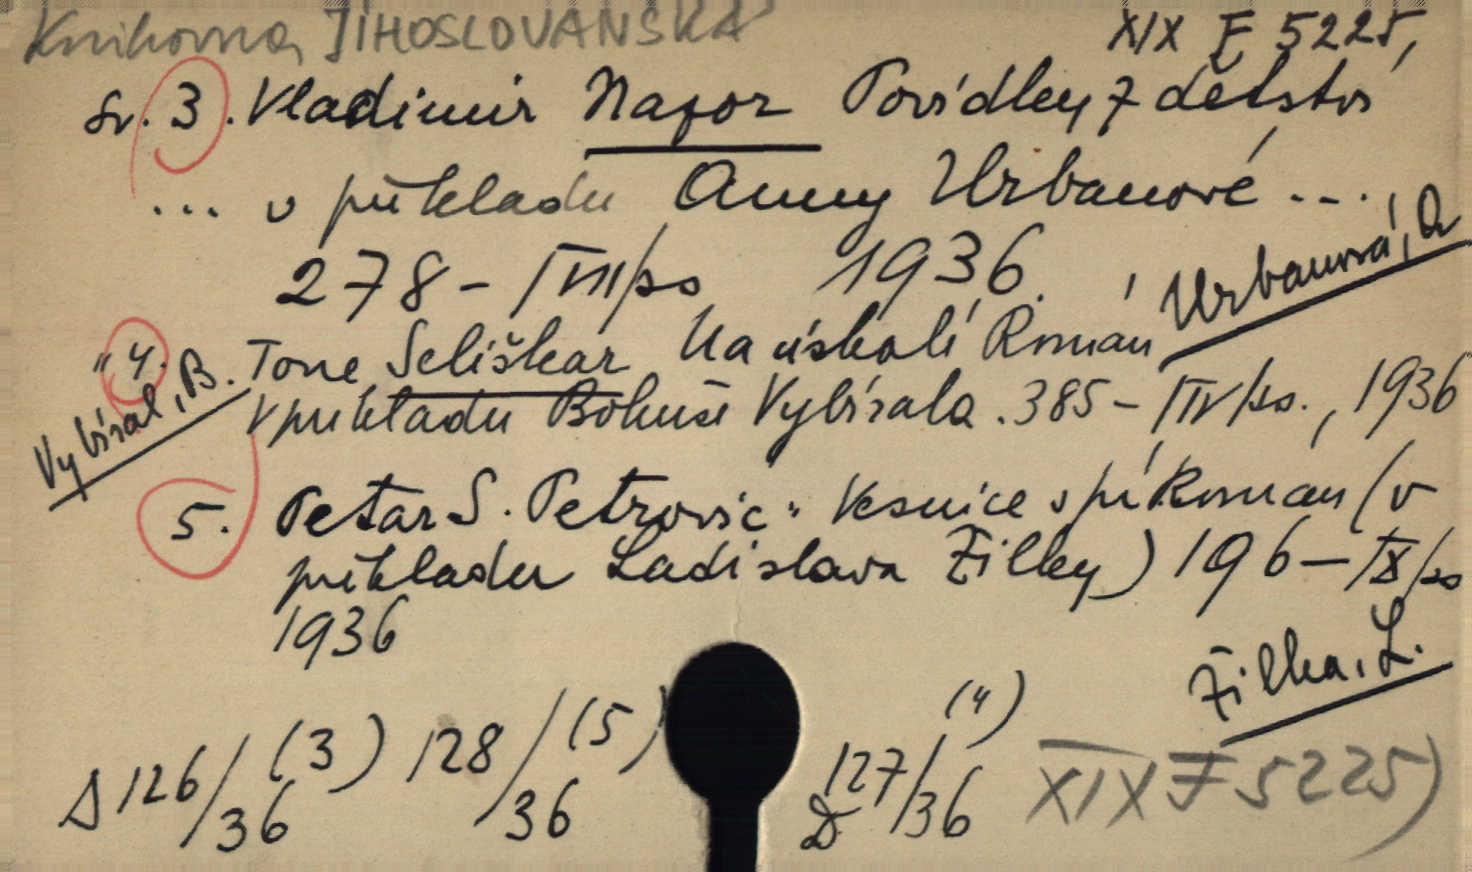 Knihovna JIHOSLOVANSKÁ XIX F 5225,
sv. 3. Vladimir Nazor Povídky z dětství
... v překladu Anny Urbanové ...,
278 - 1936. Urbanová, A
" 4. Tone Seliškar Na úskalí Román
Vybíral, B.
V překladu Bohuše Vybírala. 385 - IIV/so., 1936
5. Petar S. Petrović: Vesnice spí Román (v
překladu Ladislava Žilky) 196 - IX/so
1936
Žilka, L.
D 126/36 (3) 128/36 (5) D 127/36 (4)
XIX F 5225)